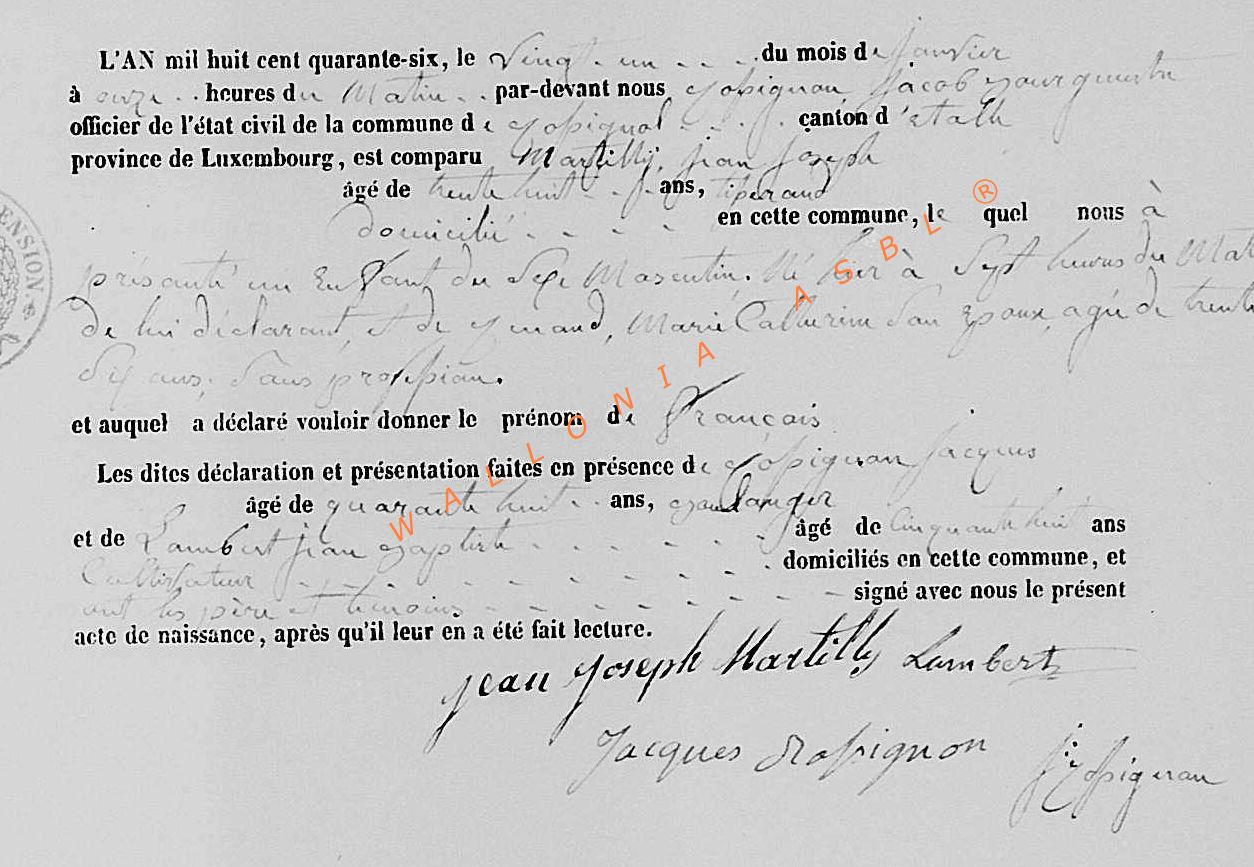 L'AN mil huit cent quarante-six, le Vingt un du mois de Janvier
à onze heures du Matin par-devant nous Jacob
officier de l'état civil de la commune de canton d'Etalle
province de Luxembourg, est comparu Martilly, jean joseph
âgé de trente huit ans, tiserand
domicilié en cette commune, le quel nous à
présanté un Enfant du Sexe Masculin. Né hier à Sept heures du Mat
De lui déclarant, et de Marie Catherine Son Epoux, agée de trente
Six ans, Sans
et auquel a déclaré vouloir donner le prénom de Français
Les dites déclaration et présentation faites en présence de Jacques
âgé de quarante huit ans,
et de Lambert jean âgé de Cinquante huit ans
Cultivateur domiciliés en cette commune, et
ont les père et temoins signé avec nous le présent
acte de naissance, après qu'il leur en a été fait lecture.
jean joseph Martilly Lambert
Jacques
WALLONIA ASBL ®
ENSION